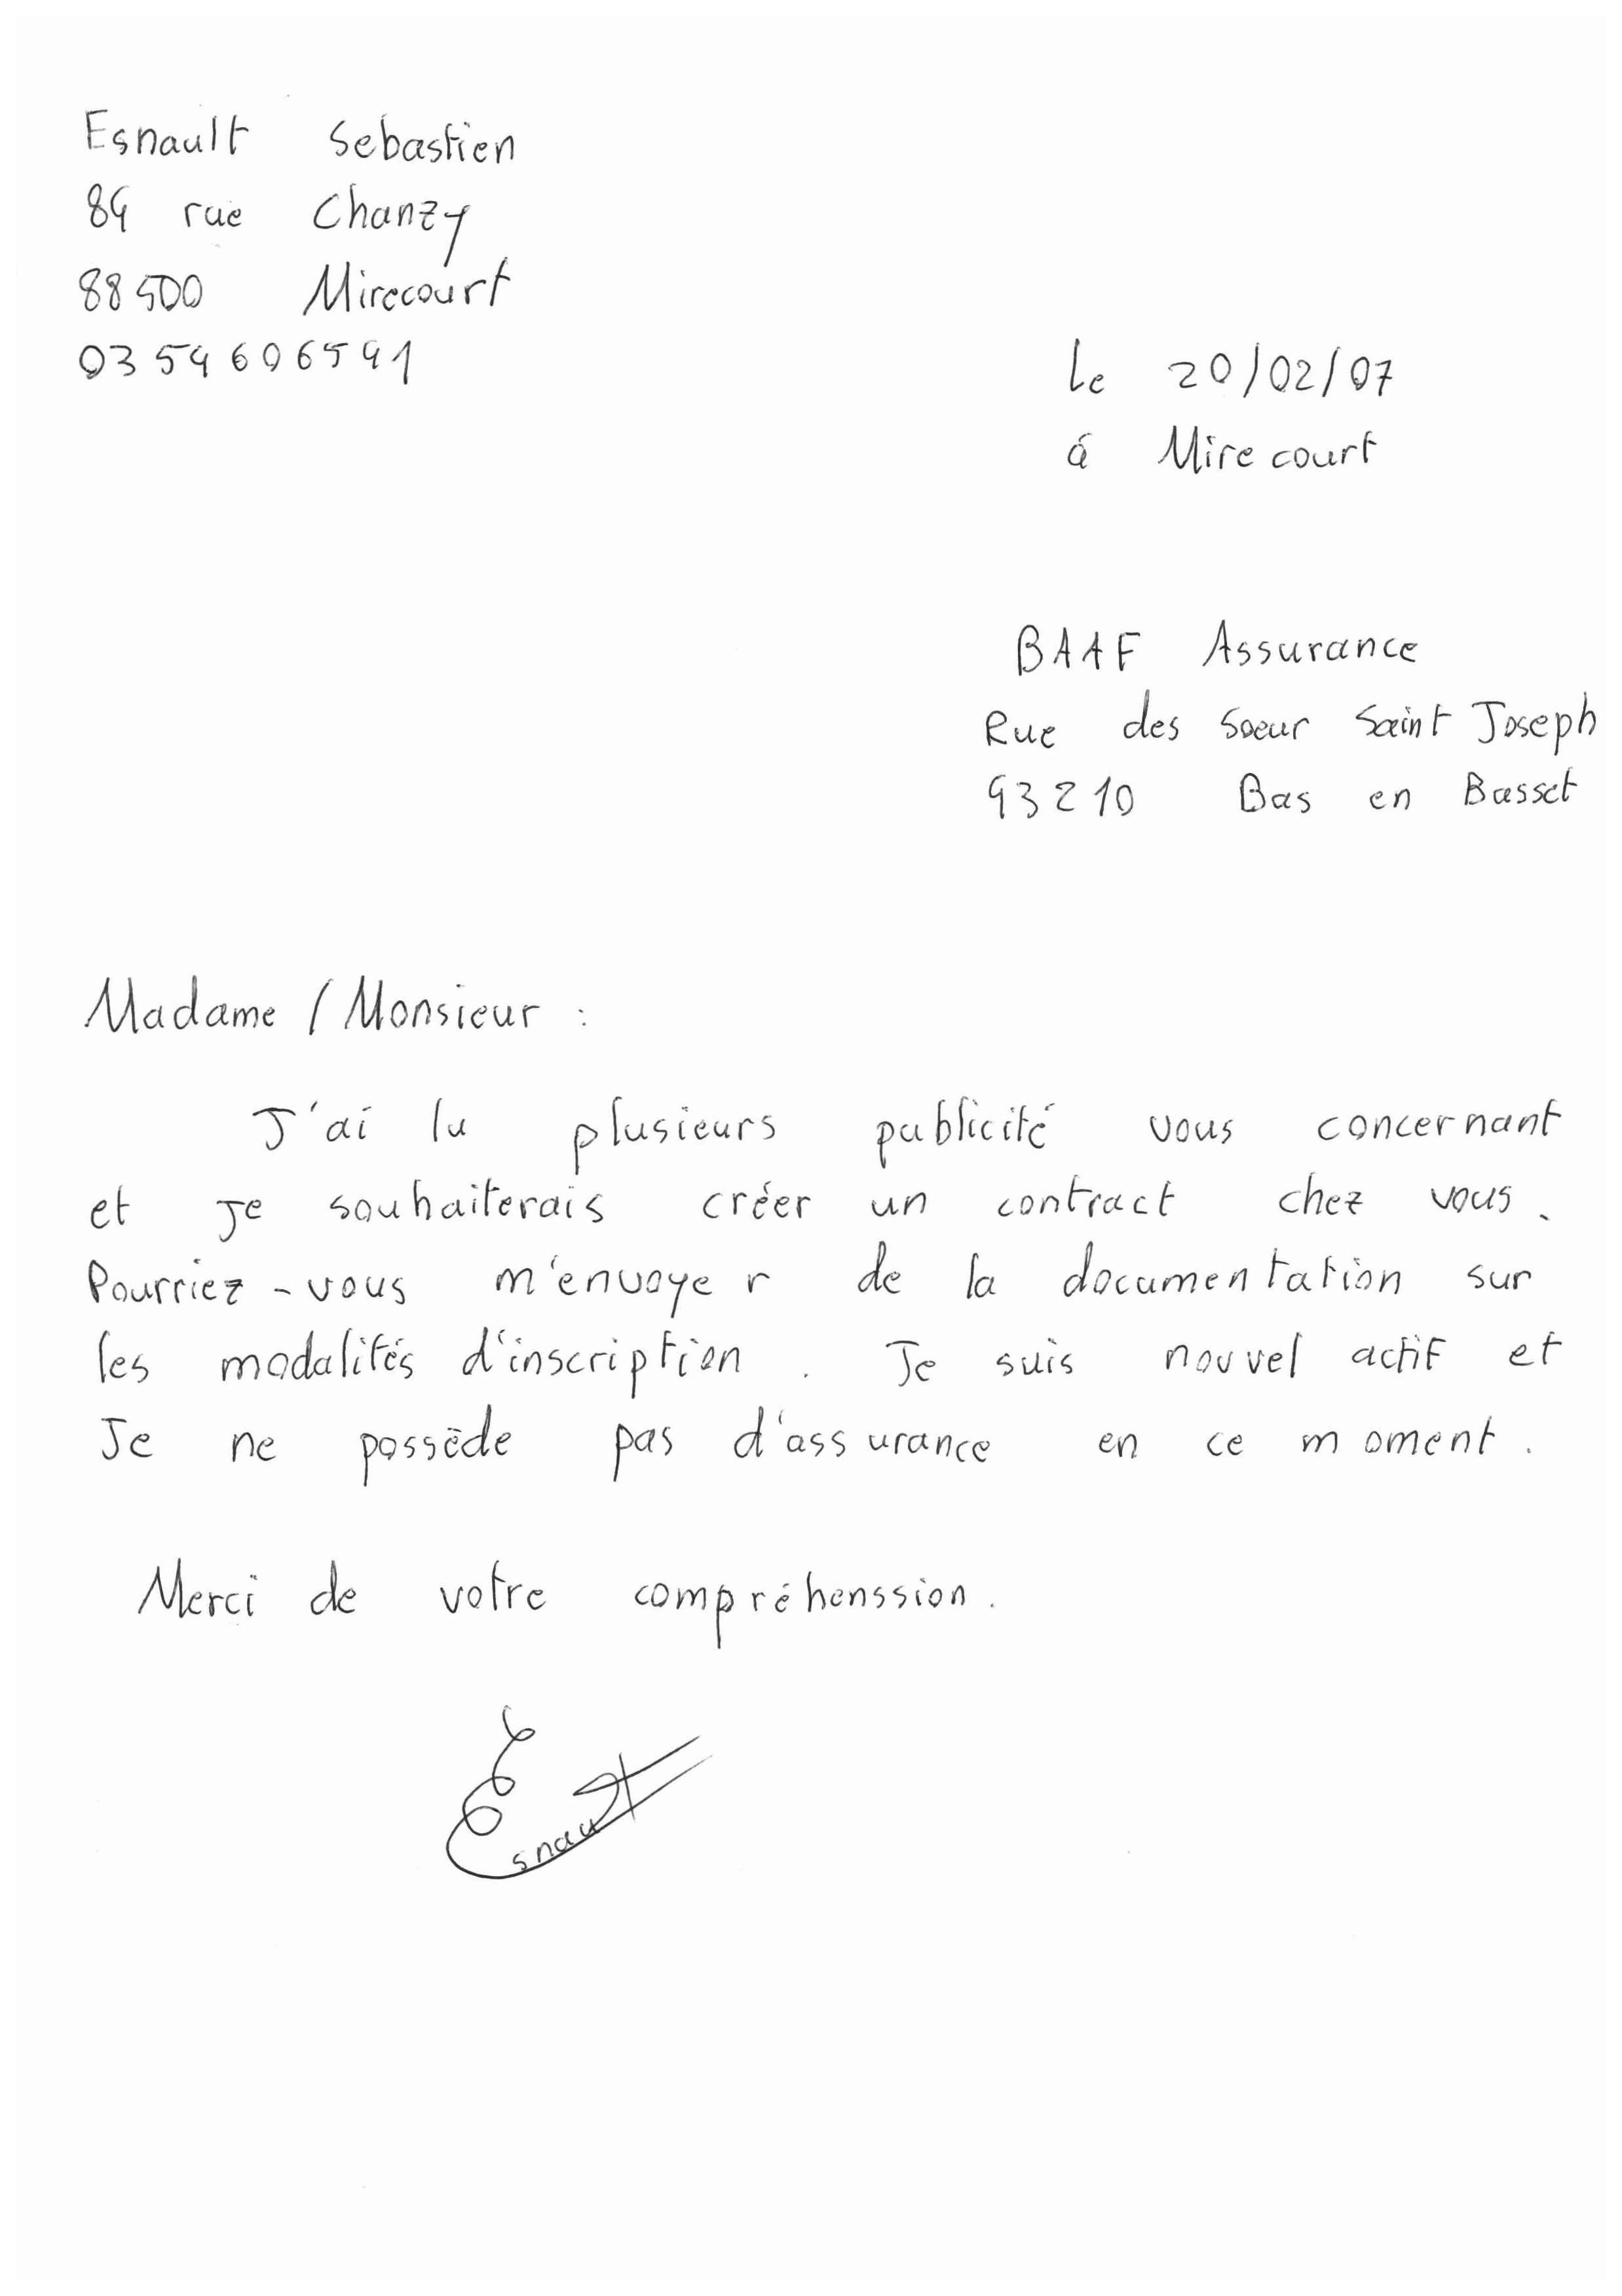 Esnault Sebastien
84 rue Chanzy
88500 Mirecourt
0354606541
Le 20/02/07
à Mirecourt
BAAF Assurance
Rue des soeur Saint Joseph
43210 Bas en Basset
Madame / Monsieur :
J'ai lu plusieurs publicité vous concernant
et je souhaiterais créer un contract chez vous.
Pourriez-vous m'envoyer de la documentation sur
les modalités d'inscription. Je suis nouvel actif et
Je ne possède pas d'assurance en ce moment.
Merci de votre compréhenssion.
Esnault